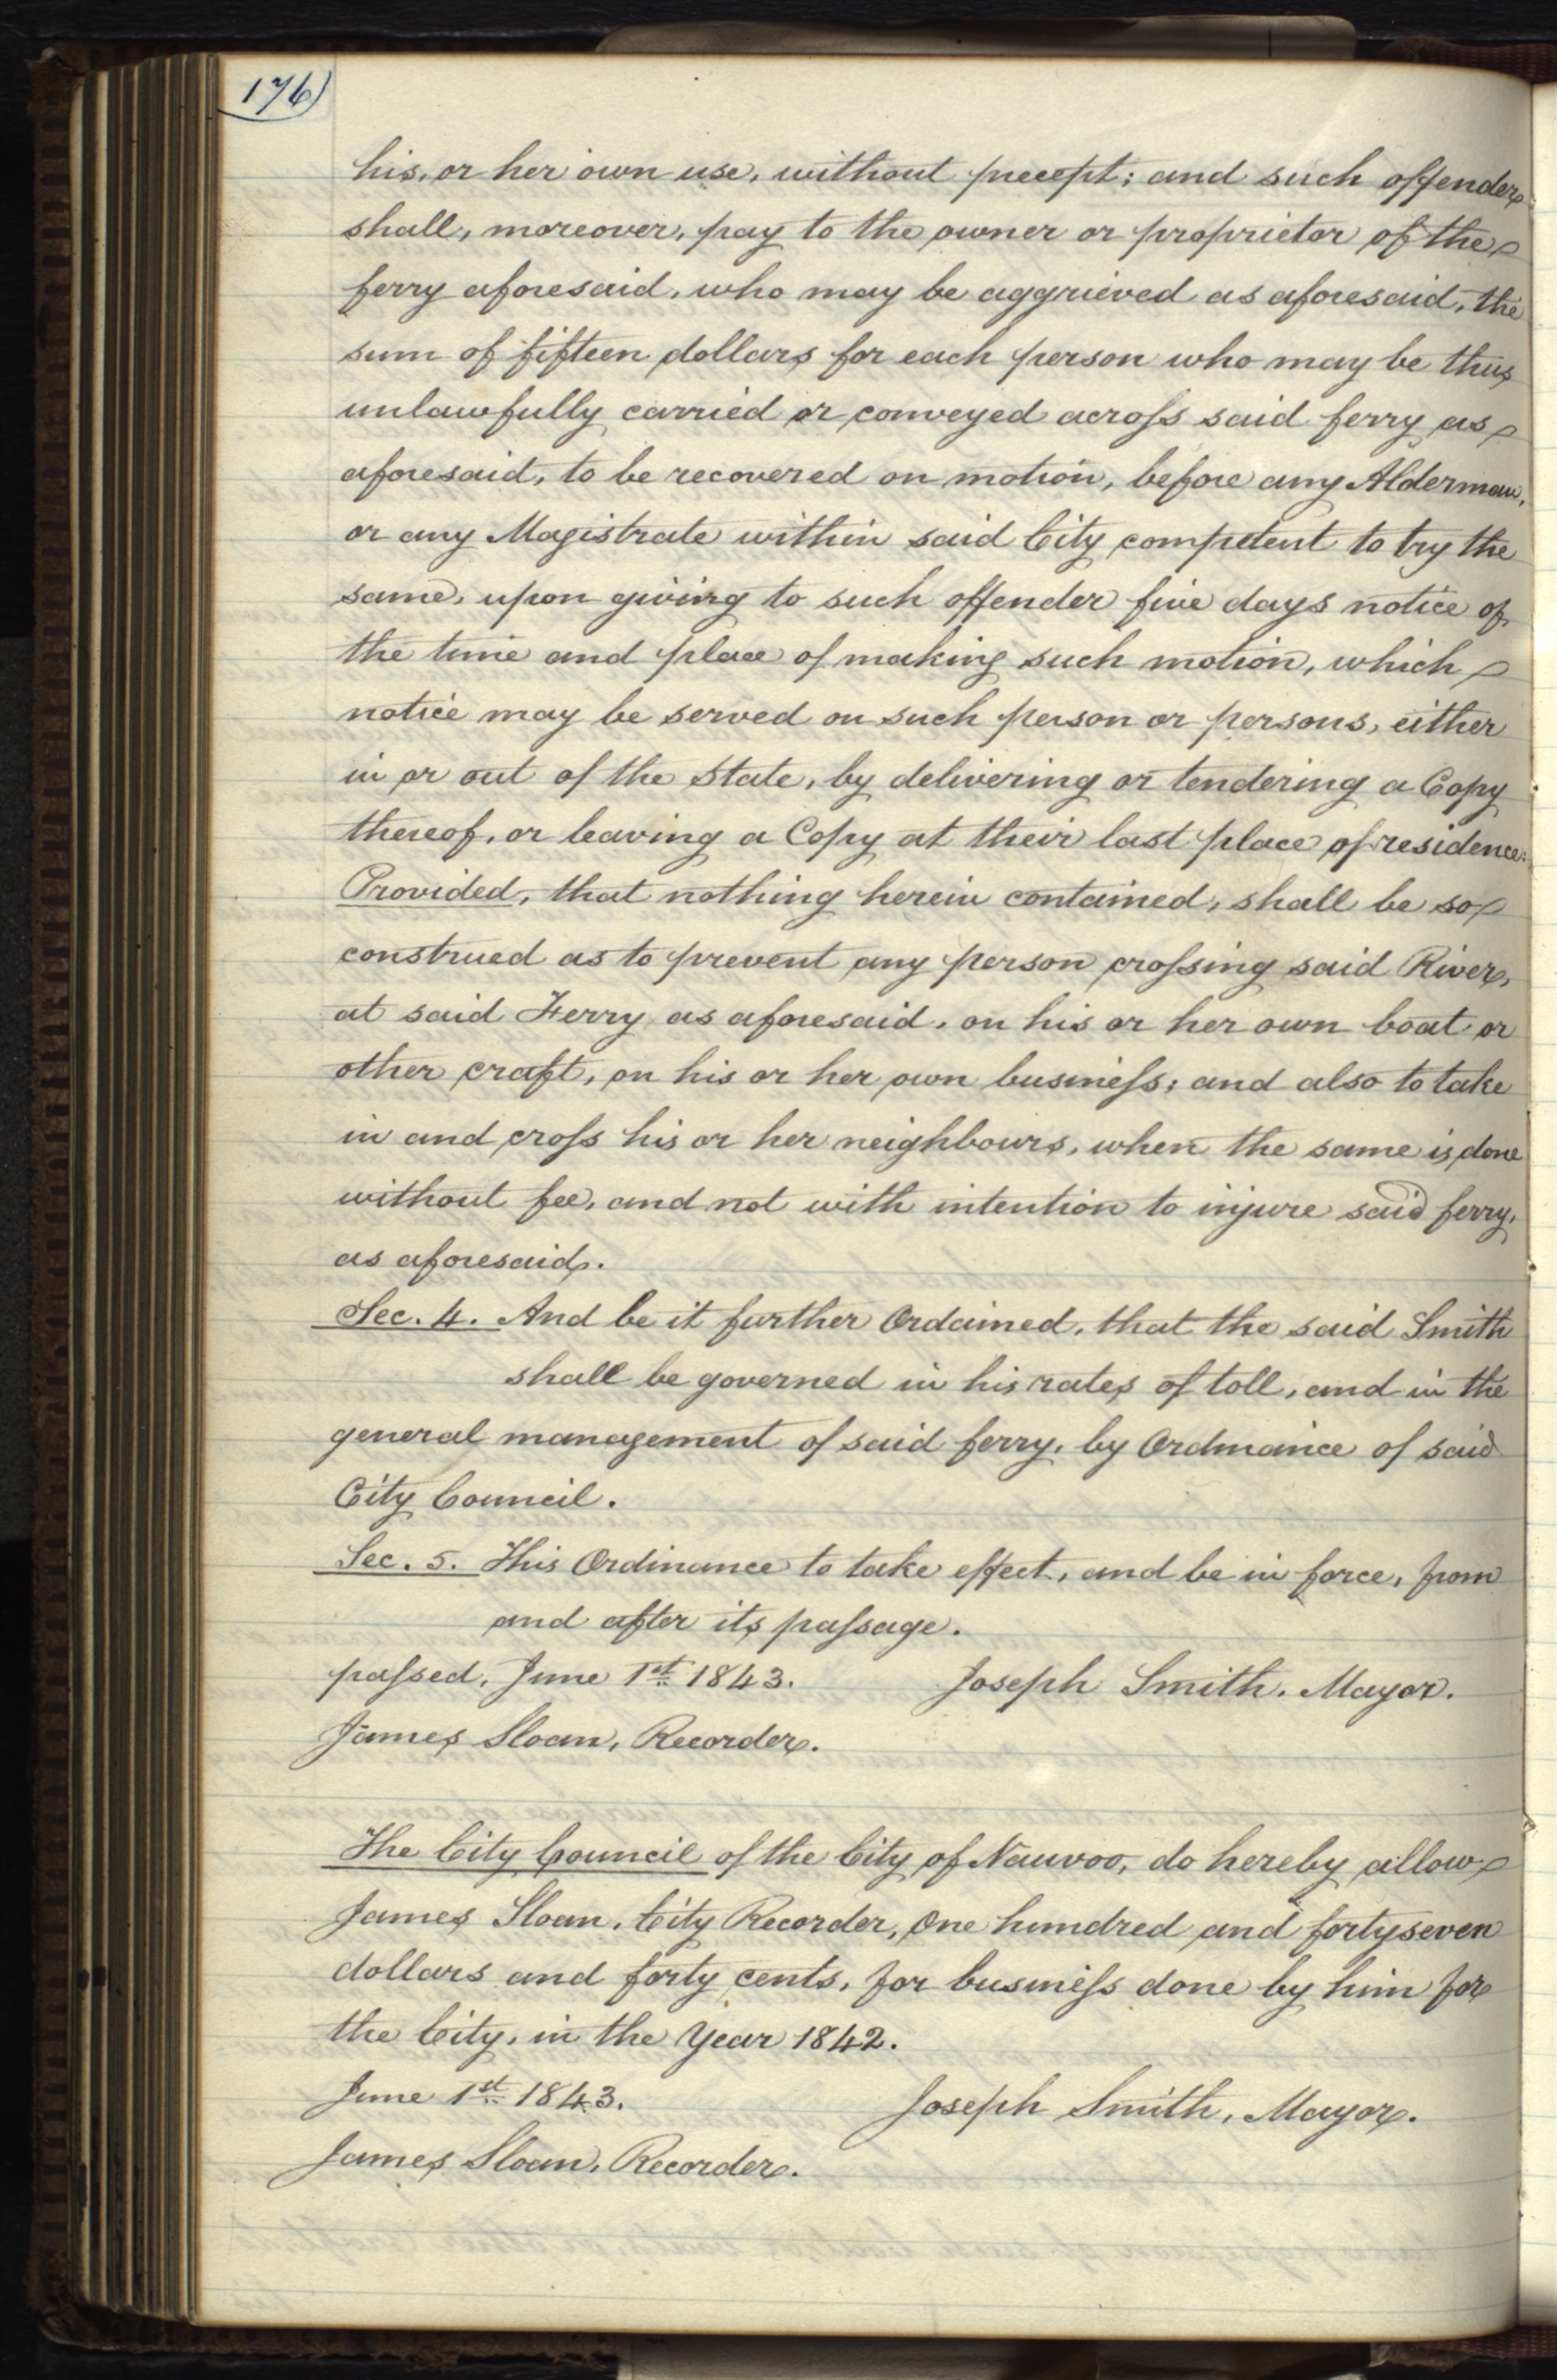 176)
his, or her own use, without precept; and such offender
shall, moreover, pay to the owner or proprietor of the
ferry aforesaid, who may be aggrieved as aforesaid, the
sum of fifteen dollars for each person who may be thus
unlawfully carried or conveyed across said ferry as
aforesaid, to be recovered on motion, before any Alderman,
or any Magistrate within said City competent to try the
same, upon giving to such offender five days notice of
the time and place of making such motion, which
notice may be served on such person or persons, either
in or out of the State, by delivering or tendering a Copy
thereof, or leaving a Copy at their last place of residence:
Provided, that nothing herein contained, shall be so
construed as to prevent any person crossing said River,
at said Ferry as aforesaid, on his or her own boat or
other craft, on his or her own business; and also to take
in and cross his or her neighbours, when the same is done
without fee, and not with intention to injure said ferry,
as aforesaid.
Sec. 4. And be it further Ordained, that the said Smith
shall be governed in his rates of toll, and in the
general management of said ferry, by Ordinance of said
City Council.
Sec. 5. This Ordinance to take effect, and be in force, from
and after its passage.
passed, June 1st 1843. Joseph Smith, Mayor.
James Sloan, Recorder.
The City Council of the City of Nauvoo, do hereby allow
James Sloan, City Recorder, One hundred and forty seven
dollars and forty cents, for business done by him for
the City, in the Year 1842.
June 1st 1843. Joseph Smith, Mayor.
James Sloan, Recorder.